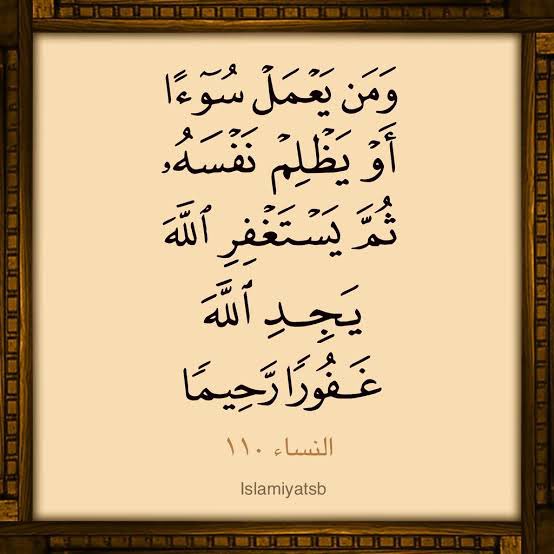 وَمَن يَعۡمَلۡ سُوٓءًا
أَوۡ يَظۡلِمۡ نَفۡسَهُۥ
ثُمَّ يَسۡتَغۡفِرِ ٱللَّهَ
يَجِدِ ٱللَّهَ
غَفُورًا رَّحِيمًا
النساء ١١٠
Islamiyatsb